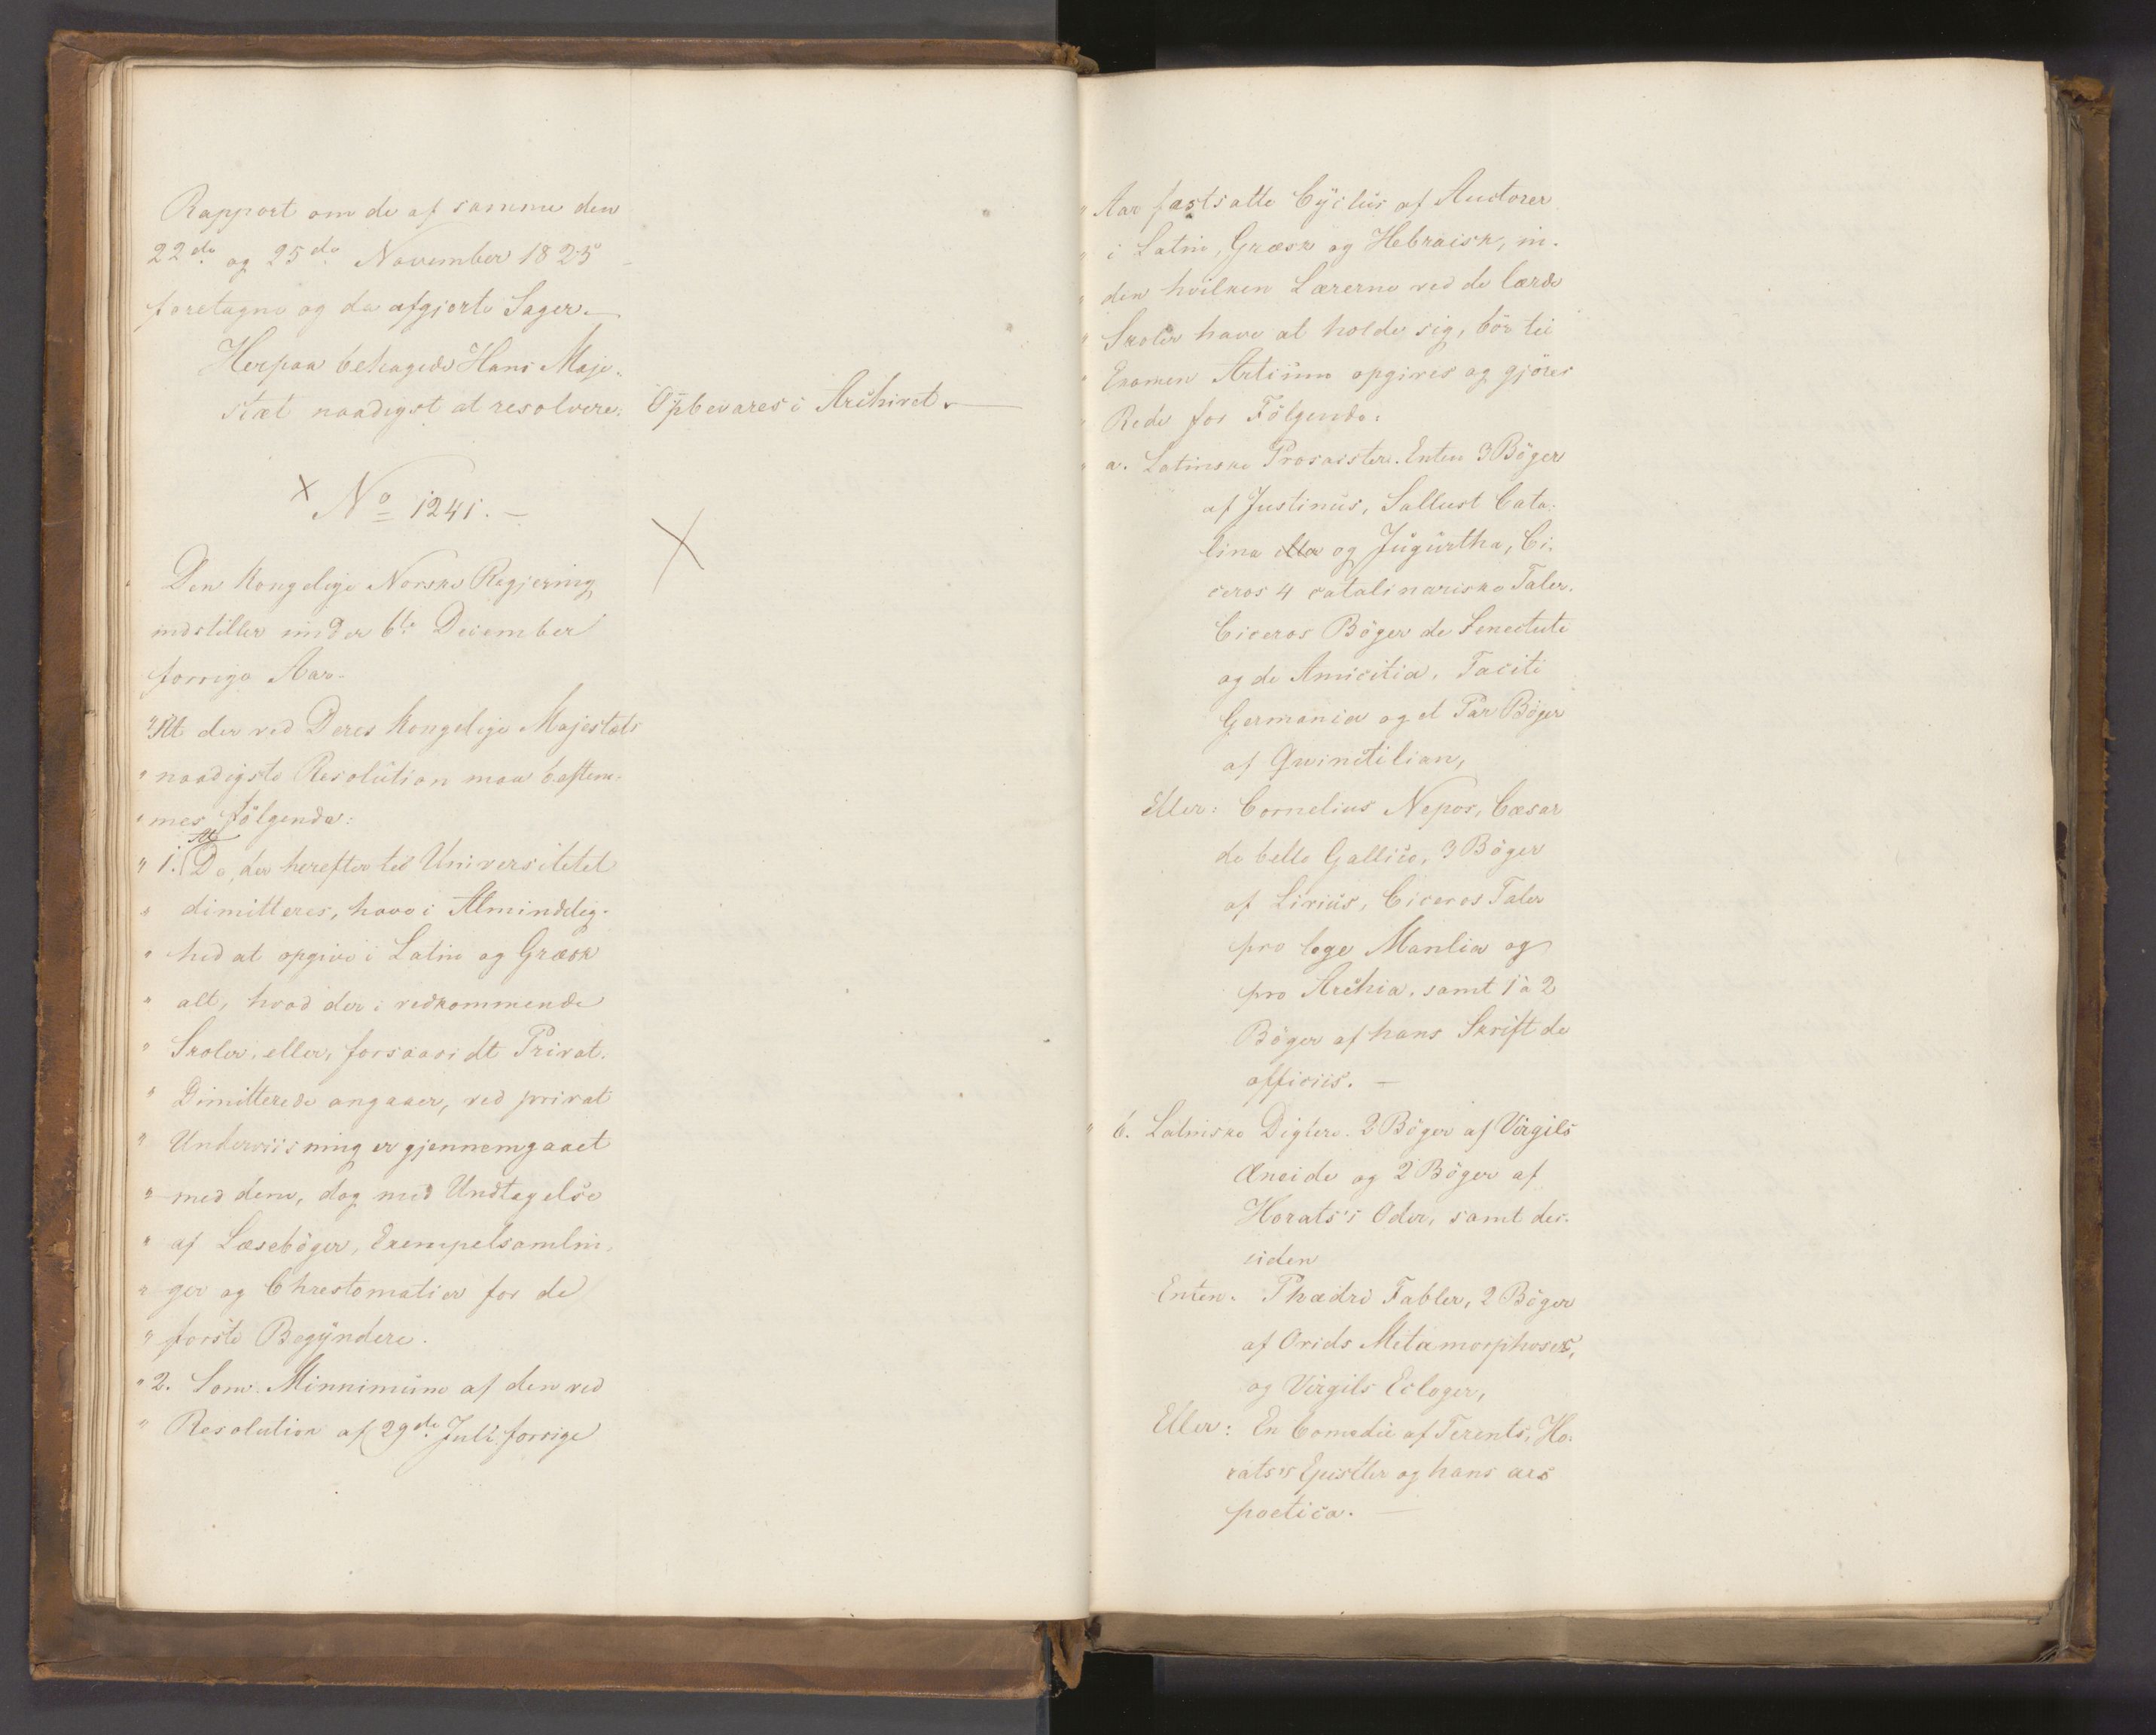 Rapport om de af samme den
22de og 25de November 1825
foretagne og da afgjorte Sager. —
Herpaa behagede Hans Maje-
stæt naadigst at resolvere: Opbevares i Archivet. —
× No 1241. —
×
Den Kongelige Norske Regjering
indstiller under 6te December
forrige Aar.
"At der ved Deres Kongelige Majestæts
" naadigste Resolution maa bestem-
" mes følgende:
At
" 1. De, der herefter til Universitetet
" dimitteres, have i Almindelig-
" hed at opgive i Latin og Græsk
" alt, hvad der i vedkommende
" Skoler, eller, forsaavidt Privat-
" Dimitterede angaaer, ved privat
" Underviisning er gjennemgaaet
" med dem, dog med Undtagelse
" af Læsebøger, Exempelsamlin-
" ger og Chrestomatier for de
" første Begyndere.
" 2. Som Minnimum af den ved
" Resolution af 29de Juli forrige
" Aar fastsatte Cyclus af Auctorer
" i Latin, Græsk og Hebraisk, in-
" den hvilken Lærerne ved de lærde
" Skoler have at holde sig, bör til
" Examen Artium opgives og gjöres
" Rede for Fölgende:
" a. Latinske Prosaister. Enten 3 Böger
af Justinus, Sallust Cata-
lina eller og Jugurtha, Ci-
ceros 4 catalinariske Taler.
Ciceros Böger de Senectute
og de Amicitia, Taciti
Germania og et Par Böger
af Qvinctilian,
Eller: Cornelius Nepos, Cæsar
de bello Gallico, 3 Böger
af Livius, Ciceros Taler
pro lege Manlia og
pro Archia, samt 1 à 2
Böger af hans Skrift de
officiis. —
" b. Latinske Digtere. 2 Böger af Virgils
Æneide og 2 Böger af
Horats's Oder, samt des-
uden
Enten. Phædri Fabler, 2 Böger
af Ovids Metamorphoser,
og Virgils Ecloger,
Eller: En Comedie af Terents, Ho-
rats's Epistler og hans ars
poetica. —